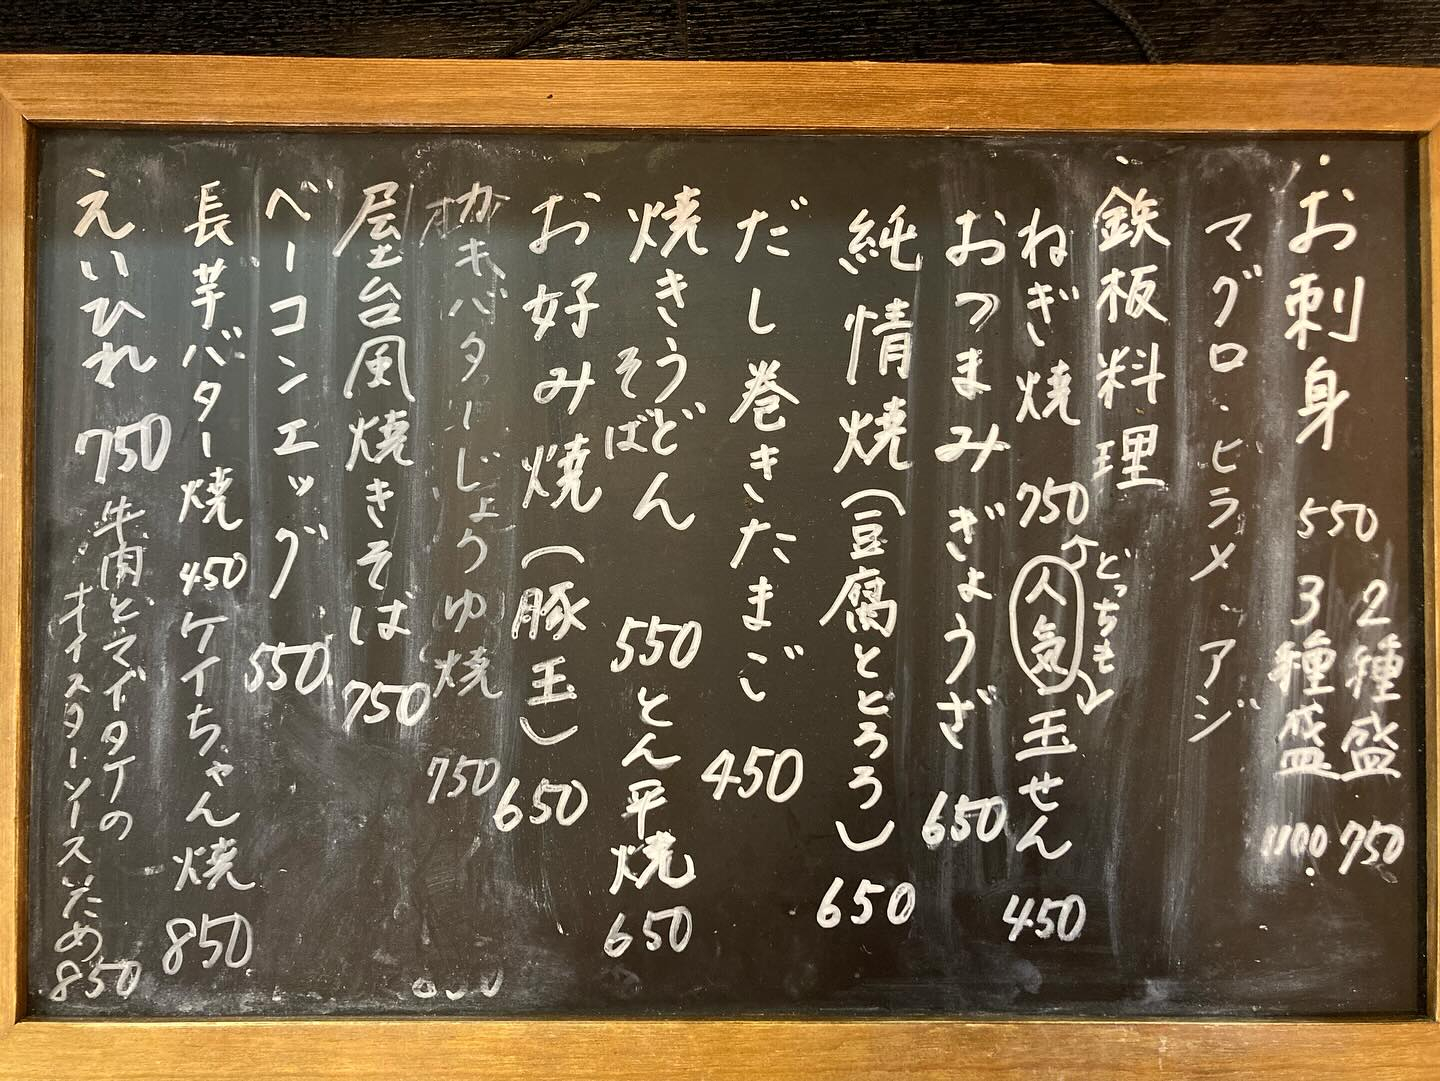 お刺身 550 2種盛 750
3種盛 1100
マグロ・ヒラメ・アジ
鉄板料理
どっちも
ねぎ焼 750 人気 玉せん 450
おつまみぎょうざ 650
純情焼(豆腐ととろろ) 650
だし巻きたまご 450
焼きうどん 550 とん平焼 650
そば
お好み焼(豚玉) 650
カキバターじょうゆ焼 750
屋台風焼きそば 750
ベーコンエッグ 550
長芋バター焼 450 ケイちゃん焼 850
えいひれ 750 牛肉とマイタケの
オイスターソースいため 850